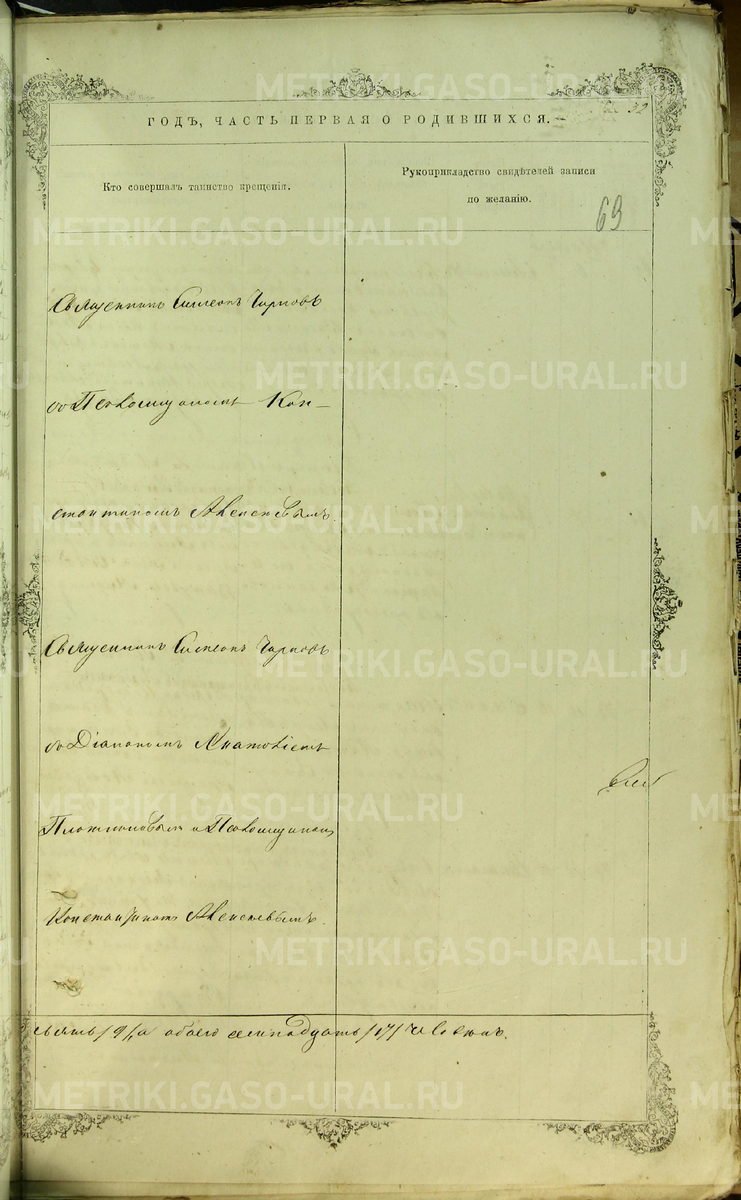 METRIKI.GASO-URAL.RU
32
ГОДЪ, ЧАСТЬ ПЕРВАЯ О РОДИВШИХСЯ.
Кто совершалъ таинство крещенія.
Рукоприкладство свидѣтелей записи
по желанію.
69
Священникъ Симеонъ Чирковъ
съ Псаломщикомъ Кон-
стантиномъ Алексѣевымъ.
Священникъ Симеонъ Чирковъ
съ Діакономъ
Плотниковымъ и Псаломщикомъ
Константиномъ Алексѣевымъ.
девять /9/, а обоего семнадцать /17/ человѣкъ.